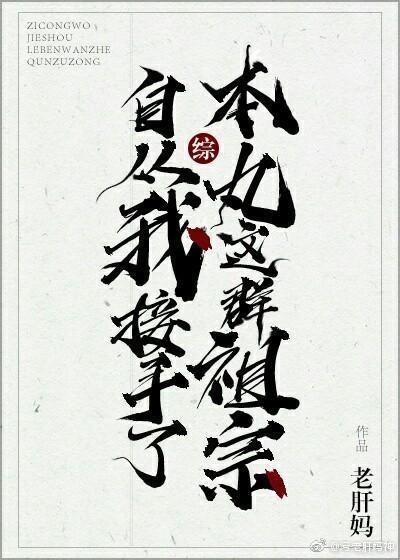 ZICONGWO
JIESHOU
LEBENWANZHE
QUNZUZONG
自从我接手了
综
本丸这群祖宗
作品
老肝妈